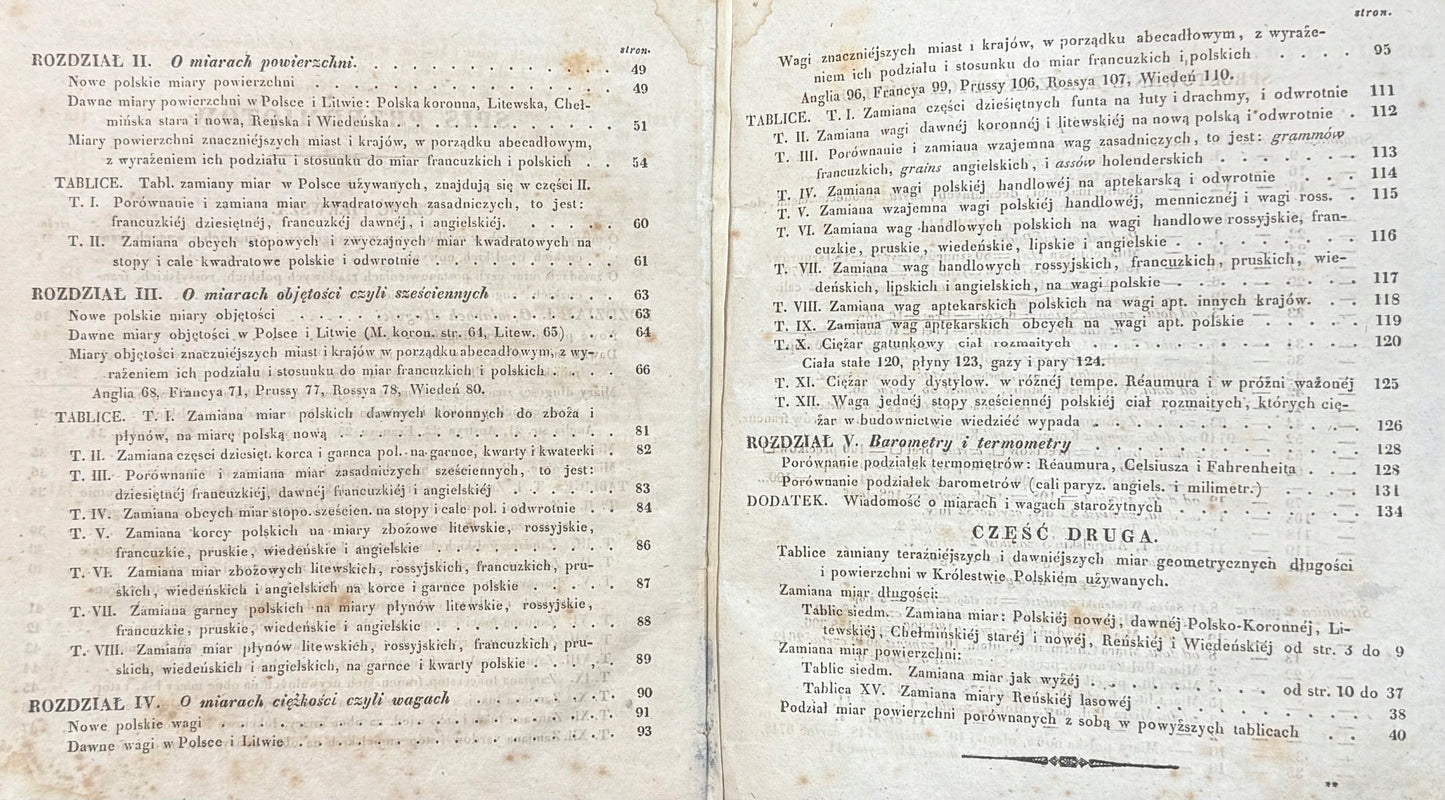 stron.
ROZDZIAŁ II. O miarach powierzchni. . . . . . . . . . . 49
Nowe polskie miary powierzchni . . . . . . . . . . . 49
Dawne miary powierzchni w Polsce i Litwie: Polska koronna, Litewska, Cheł-
mińska stara i nowa, Reńska i Wiedeńska . . . . . . . . . 51
Miary powierzchni znaczniéjszych miast i krajów, w porządku abecadłowym,
z wyrażeniem ich podziału i stosunku do miar francuzkich i polskich . . 54
TABLICE. Tabl. zamiany miar w Polsce używanych, znajdują się w części II.
T. I. Porównanie i zamiana miar kwadratowych zasadniczych, to jest:
francuzkiéj dziesiętnéj, francuzkéj dawnéj, i angielskiéj. . . . . . 60
T. II. Zamiana obcych stopowych i zwyczajnych miar kwadratowych na
stopy i cale kwadratowe polskie i odwrotnie . . . . . . . . 61
ROZDZIAŁ III. O miarach objętości czyli sześciennych . . . . . . 63
Nowe polskie miary objętości . . . . . . . . . . . . 63
Dawne miary objętości w Polsce i Litwie (M. koron. str. 64, Litew. 65) . . . 64
Miary objętości znaczniéjszych miast i krajów w porządku abecadłowym, z wy-
rażeniem ich podziału i stosunku do miar francuzkich i polskich . . . . 66
Anglia 68, Francya 71, Prussy 77, Rossya 78, Wiedeń 80.
TABLICE. T. I. Zamiana miar polskich dawnych koronnych do zboża i
płynów, na miarę polską nową . . . . . . . . . . . 81
T. II. Zamiana częsci dziesięt. korca i garnca pol. na garnce, kwarty i kwaterki 82
T. III. Porównanie i zamiana miar zasadniczych sześciennych, to jest:
dziesiętnéj francuzkiéj, dawnéj francuzkiéj i angielskiéj . . . . . 83
T. IV. Zamiana obcych miar stopo. sześcien. na stopy i cale pol. i odwrotnie . . 84
T. V. Zamiana korcy polskich na miary zbożowe litewskie, rossyjskie,
francuzkie, pruskie, wiedeńskie i angielskie . . . . . . . . 86
T. VI. Zamiana miar zbożowych litewskich, rossyjskich, francuzkich, pru-
skich, wiedeńskich i angielskich na korce i garnce polskie . . . . 87
T. VII. Zamiana garncy polskich na miary płynów litewskie, rossyjskie,
francuzkie, pruskie, wiedeńskie i angielskie . . . . . . . . 88
T. VIII. Zamiana miar płynów litewskich, rossyjskich, francuzkich, pru-
skich, wiedeńskich i angielskich, na garnce i kwarty polskie . . . . 89
ROZDZIAŁ IV. O miarach ciężkości czyli wagach . . . . . . . 90
Nowe polskie wagi . . . . . . . . . . . . . . . 91
Dawne wagi w Polsce i Litwie . . . . . . . . . . . . 93
stron.
Wagi znaczniéjszych miast i krajów, w porządku abecadłowym, z wyraże-
niem ich podziału i stosunku do miar francuzkich i polskich . . . . 95
Anglia 96, Francya 99, Prussy 106, Rossya 107, Wiedeń 110.
TABLICE. T. I. Zamiana części dziesiętnych funta na łuty i drachmy, i odwrotnie 111
T. II. Zamiana wagi dawnéj koronnéj i litewskiéj na nową polską i odwrotnie . 112
T. III. Porównanie i zamiana wzajemna wag zasadniczych, to jest: grammów
francuzkich, grains angielskich, i assów holenderskich . . . . . . 113
T. IV. Zamiana wagi polskiéj handlowéj na aptekarską i odwrotnie . . . 114
T. V. Zamiana wzajemna wagi polskiéj handlowéj, mennicznéj i wagi ross. . 115
T. VI. Zamiana wag handlowych polskich na wagi handlowe rossyjskie, fran-
cuzkie, pruskie, wiedeńskie, lipskie i angielskie . . . . . . . . 116
T. VII. Zamiana wag handlowych rossyjskich, francuzkich, pruskich, wie-
deńskich, lipskich i angielskich, na wagi polskie . . . . . . . . 117
T. VIII. Zamiana wag aptekarskich polskich na wagi apt. innych krajów. . . 118
T. IX. Zamiana wag aptekarskich obcych na wagi apt. polskie . . . . . 119
T. X. Ciężar gatunkowy ciał rozmaitych . . . . . . . . . . 120
Ciała stałe 120, płyny 123, gazy i pary 124.
T. XI. Ciężar wody dystylow. w różnéj tempe. Réaumura i w próżni ważonéj 125
T. XII. Waga jednéj stopy sześciennéj polskiéj ciał rozmaitych, których cię-
żar w budownictwie wiedzieć wypada . . . . . . . . . . 126
ROZDZIAŁ V. Barometry i termometry . . . . . . . . . . 128
Porównanie podziałek termometrów: Réaumura, Celsiusza i Fahrenheita . . 128
Porównanie podziałek barometrów (cali paryz. angiels. i milimetr.) . . . 131
DODATEK. Wiadomość o miarach i wagach starożytnych . . . . . . 134
CZĘŚĆ DRUGA.
Tablice zamiany teraźniéjszych i dawniéjszych miar geometrycznych długości
i powierzchni w Królestwie Polskiém używanych.
Zamiana miar długości:
Tablic siedm. Zamiana miar: Polskiéj nowéj, dawnéj Polsko-Koronnéj, Li-
tewskiéj, Chełmińskiéj staréj i nowéj, Reńskiéj i Wiedeńskiéj od str. 3 do 9
Zamiana miar powierzchni:
Tablic siedm. Zamiana miar jak wyżéj . . . . . . . od str. 10 do 37
Tablica XV. Zamiana miary Reńskiéj lasowéj . . . . . . . . 38
Podział miar powierzchni porównanych z sobą w powyższych tablicach . . 40
**